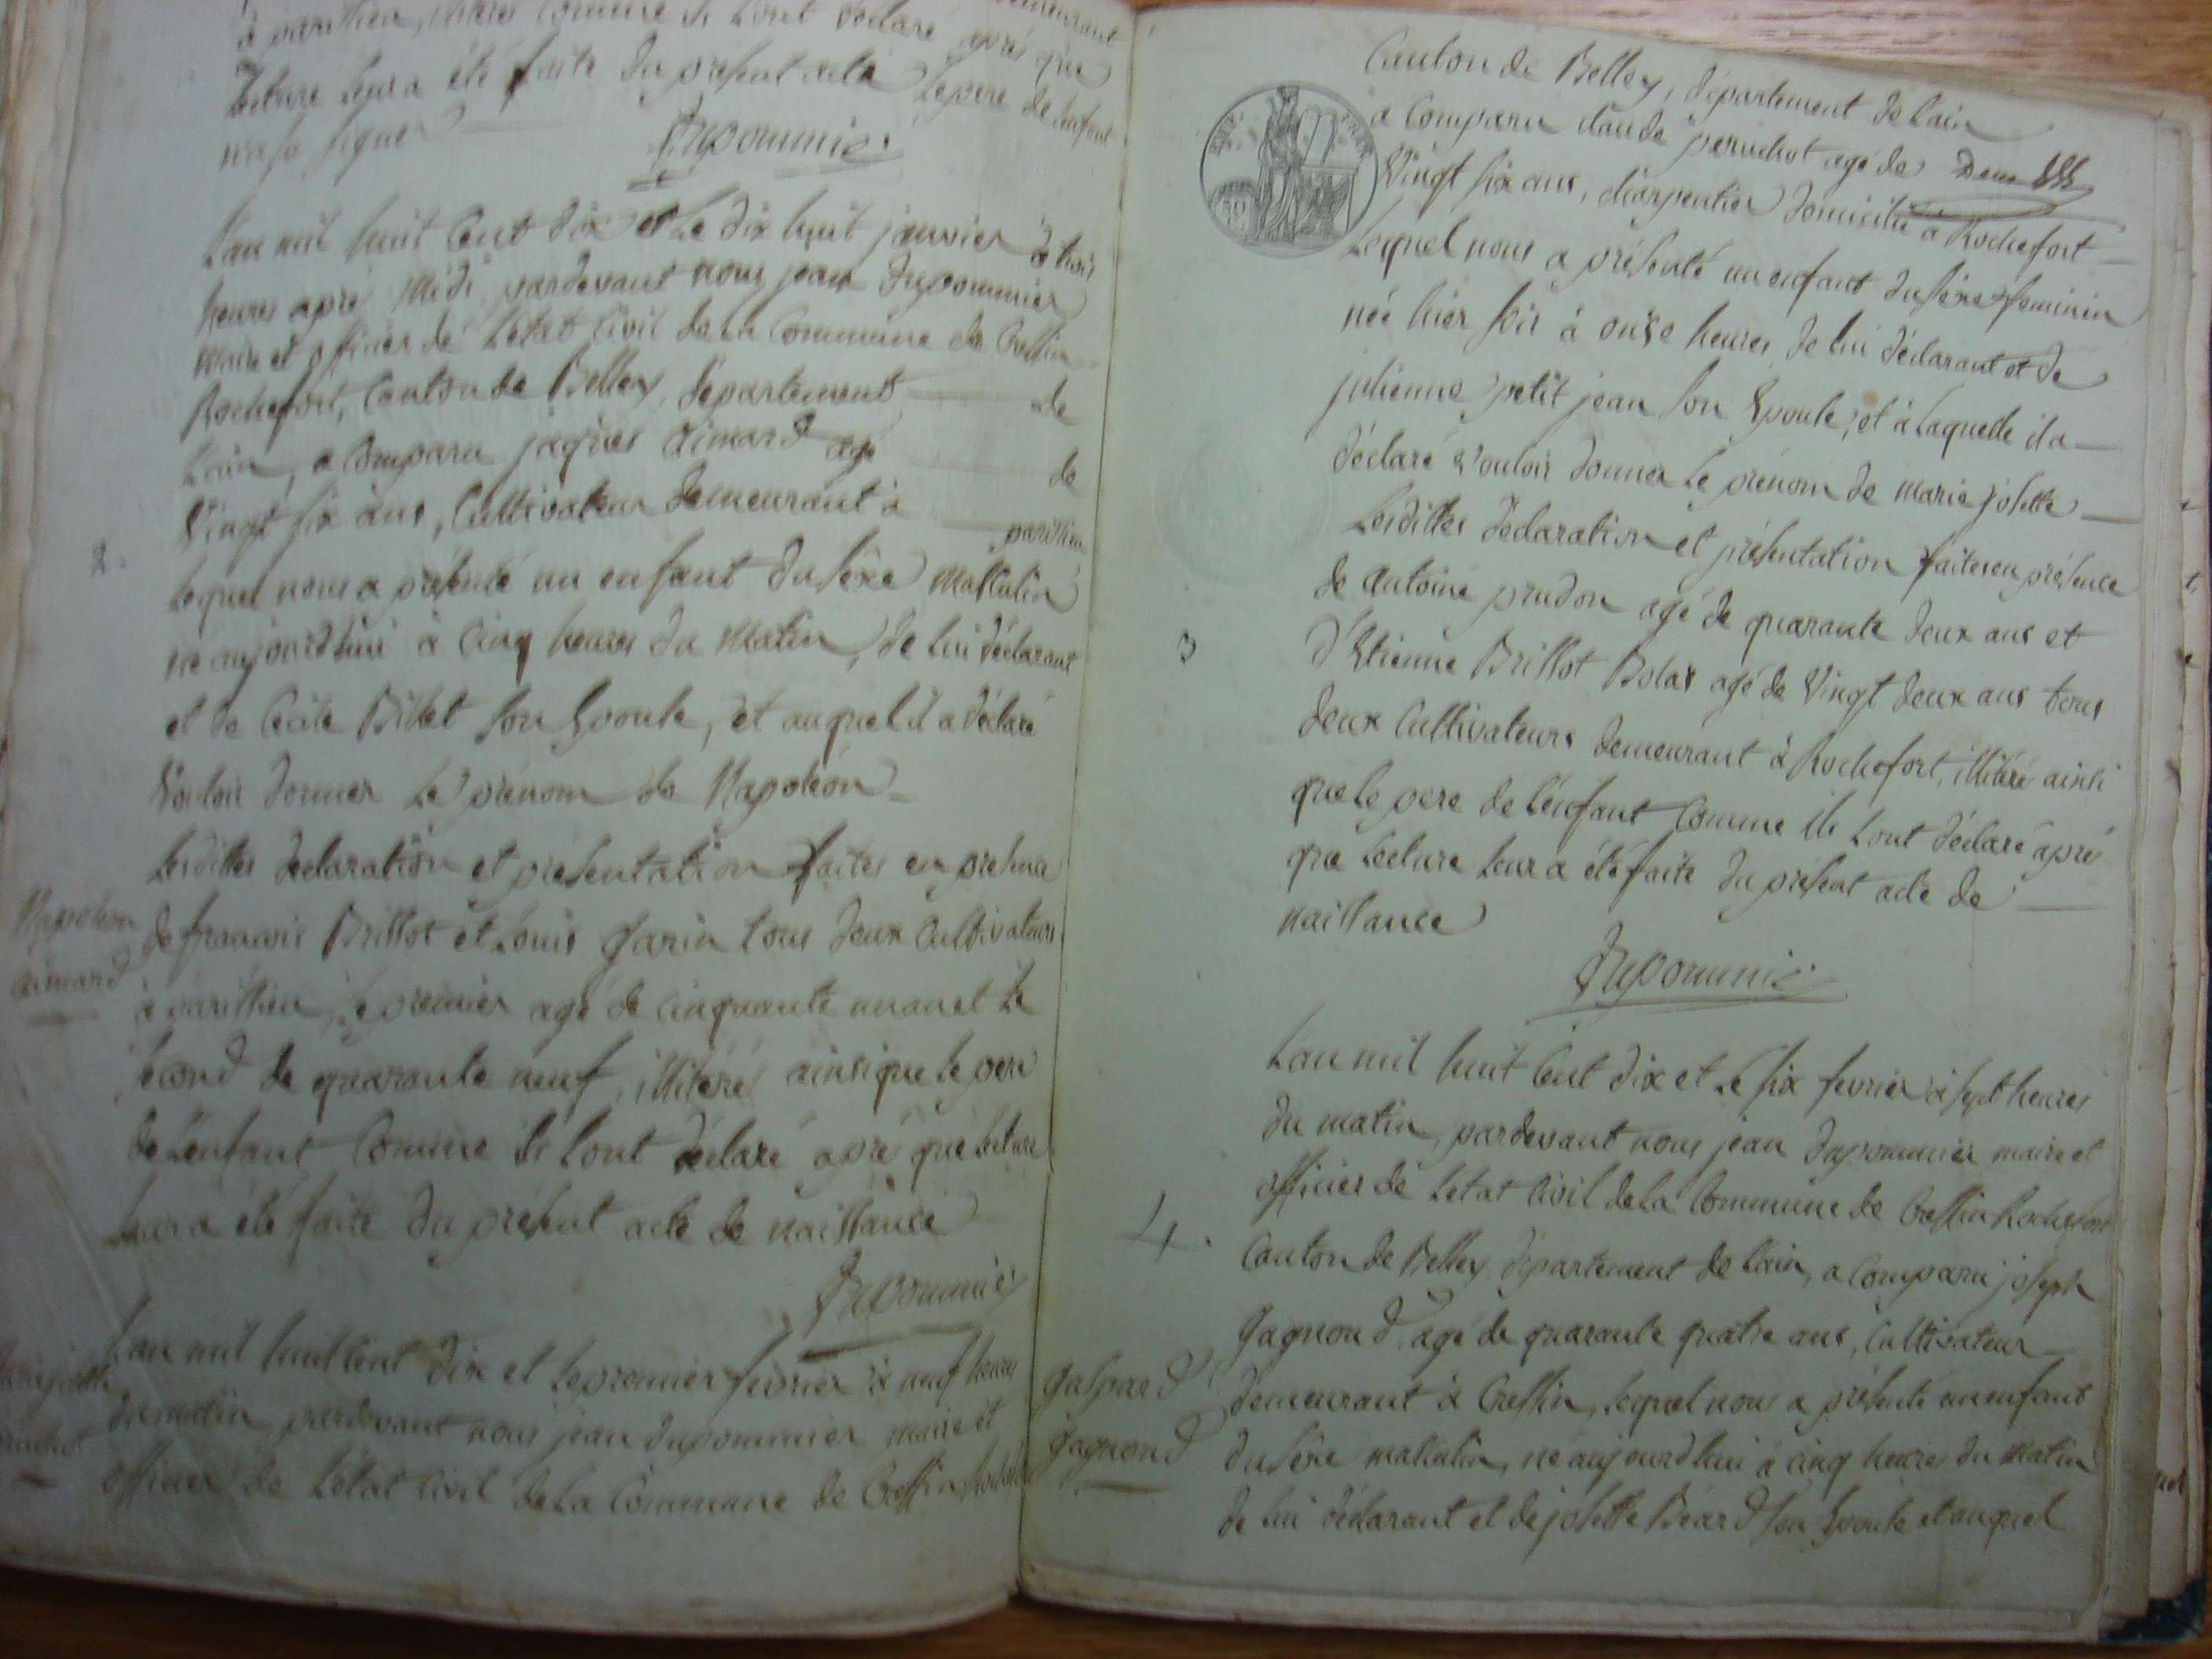 à parithieu, comme ils l'ont déclaré après que
lecture leur a été faite du présent acte le pere de l'enfant
n'a su signer
Dupommie
L'an mil huit cent dix et le dix huit janvier à trois
heures après Midi pardevant nous jean Dupommier
maire et officier de L'état Civil de la Commune de Cressin
Rochefort, Canton de Belley, département de
Lain, a comparu jaques aimard agé de
Vingt six ans, Cultivateur demeurant à parithieu
2.
Lequel nous a présenté un enfant du sexe masculin
né aujourd'hui à Cinq heures du Matin, de lui déclarant
et de Cecile Billet son Epouse, et auquel il a déclaré
Vouloir donner le prénom de Napoléon
Lesdittes déclaration et présentation faites en présence
Napoléon
aimard
de francois Brillot et Louis Garin tous deux Cultivateurs
à parithieu, le premier agé de cinquante un an et le
second de quarante neuf, illitéré ainsi que le pere
de L'enfant Comme ils l'ont déclaré après que lecture
leur a été faite du présent acte de naissance
Dupommie
L'an mil huit cent dix et le premier fevrier à neuf heures
du matin pardevant nous jean dupommier maire et
officier de L'état Civil de La Commune de Cressin
Canton de Belley, département de Lain
a Comparu claude peruchot agé de
Vingt six ans, charpentier domicilié à Rochefort
Lequel nous a présenté un enfant du sexe feminin
née hier soir à onse heures, de lui déclarant et de
julienne petit jean son Epouse, et à laquelle il a
déclaré Vouloir donner le prénom de marie josette
Lesdittes déclaration et présentation faites en présence
de antoine prudon agé de quarante deux ans et
3
d'Etienne Brillot Bolar agé de Vingt deux ans tous
deux Cultivateurs demeurant à Rochefort, illitéré ainsi
que le pere de l'enfant Comme ils l'ont déclaré après
que lecture leur a été faite du présent acte de
naissance
Dupommie
L'an mil huit Cent dix et le six fevrier à sept heures
du matin, pardevant nous jean dupommier maire et
officier de L'état Civil de la Commune de Cressin Rochefort
4.
Canton de Belley, département de Lain, a Comparu joseph
Gagnond, agé de quarante quatre ans, Cultivateur
Gaspard
Gagnond
demeurant à Cressin, lequel nous a présenté un enfant
du sexe masculin, né aujourd'hui à cinq heure du matin
de lui déclarant et de josette Béard son Epouse et auquel